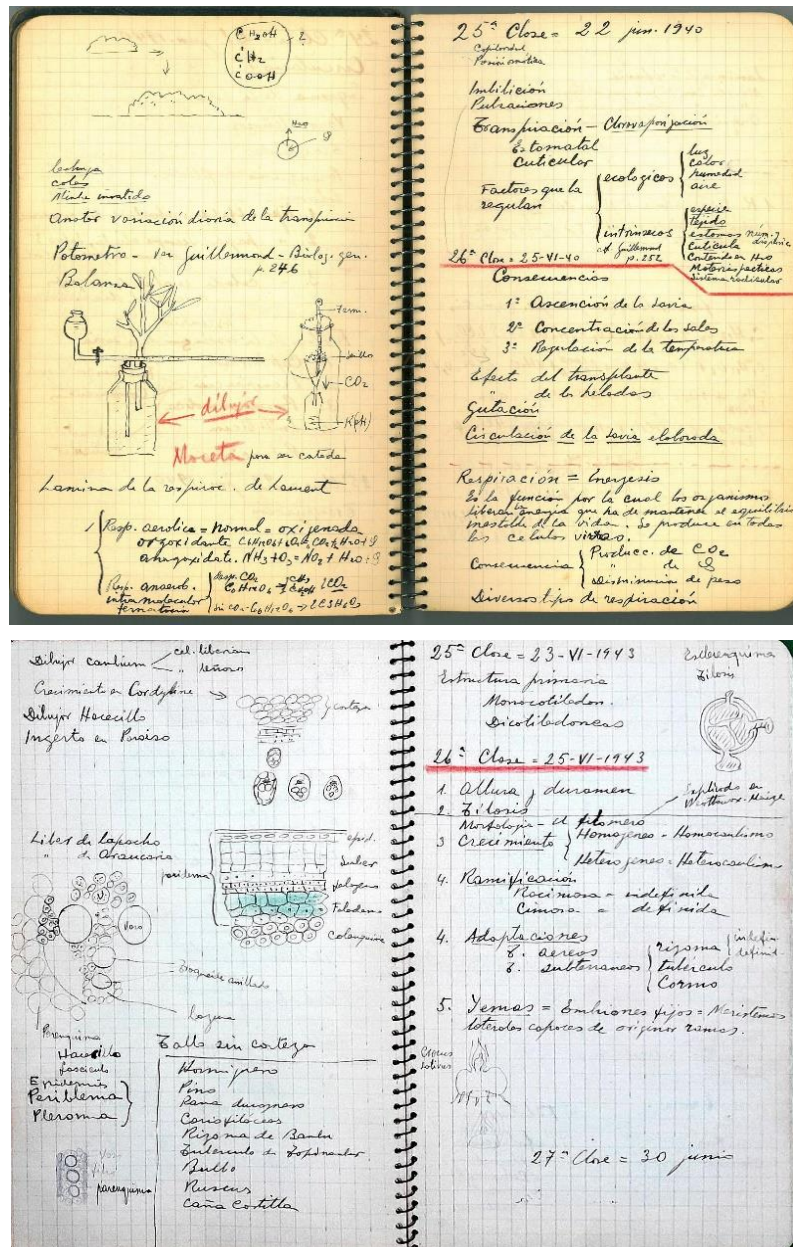 CH2OH
CH2
COOH
H2O
lechuga
coles
Anotar variación diaria de la transpiración
Potometro - Ver Guillermond - Biolog. gen.
p. 246
Balanza
Term.
CO2
K(OH)
dibujar
Maceta para ser cateda
Lamina de la respirac. de Lament
Resp. aerobica = normal = oxigenada
orgoxidante C6H12O6+6O2=6CO2+6H2O+
anorgoxidat. NH3+O3=NO2+H2O+
Resp. anaerob.
intramolecular
fermentaria
25ª Clase = 22 jun. 1940
Capilaridad
Imbibición
Pulsaciones
Transpiración - Clorovaporización
Estomatal
Cuticular
Factores que la
regulan
ecologicos
luz
calor
humedad
aire
intrínsecos
cf. Guillermond
p. 252
especie
tejido
estomas num. y
Cuticula
Contenido en H2O
Sistema radicular
26ª Clase = 25-VI-40
Consecuencias
1ª Ascención de la savia
2ª Concentración de las sales
3ª Regulación de la temperatura
Efecto del transplante
" de las heladas
Gutación
Circulación de la savia elaborada
Respiración = Energesis
Es la función por la cual los organismos
liberan energía que ha de mantener el equilibrio
inestable de la vida. Se produce en todas
las celulas vivas.
Consecuencia
Producc. de CO2
" de
Disminución de peso
Diversos tips de respiración
Dibujar cambium
cel. liberiana
" leñosa
Crecimiento en Cordyline
corteza
Dibujar Hacecillo
Ingerto en Paraiso
Liber de lapacho
" de Araucaria
peridermo
epid.
Suber
felogeno
Felodermo
Colenquima
Vaso
Traqueida anillada
laguna
Parenquima
Hacecillo
fasciculo
Epidermis
Periblema
Pleroma
parenquima
Tallo sin corteza
Hormiguero
Pino
Rama duraznero
Cariofiláceas
Rizoma de Bambu
Tuberculo de Topinambur
Bulbo
Ruscus
Caña Castilla
25ª Clase = 23-VI-1943
Esclerenquima
Tilosis
Estructura primaria
Monocotiledon.
Dicotiledoneas
26ª Clase = 25-VI-1943
1. Albura y duramen
2. Tilosis
Explicado en
Morfologia - el fitomero
3 Crecimiento
Homogeneo - Homocaulismo
Heterogeneo = Heterocaulism
4. Ramificación
Racimosa = indefinida
Cimosa = definida
4. Adaptaciones
T. aereos
T. subterraneos
rizoma
indefin
definit
tubérculo
Cormo
5. Yemas = Embriones fijos = Meristemas
laterales capaces de originar ramas.
Crocus
sativus
27ª Clase = 30 junio